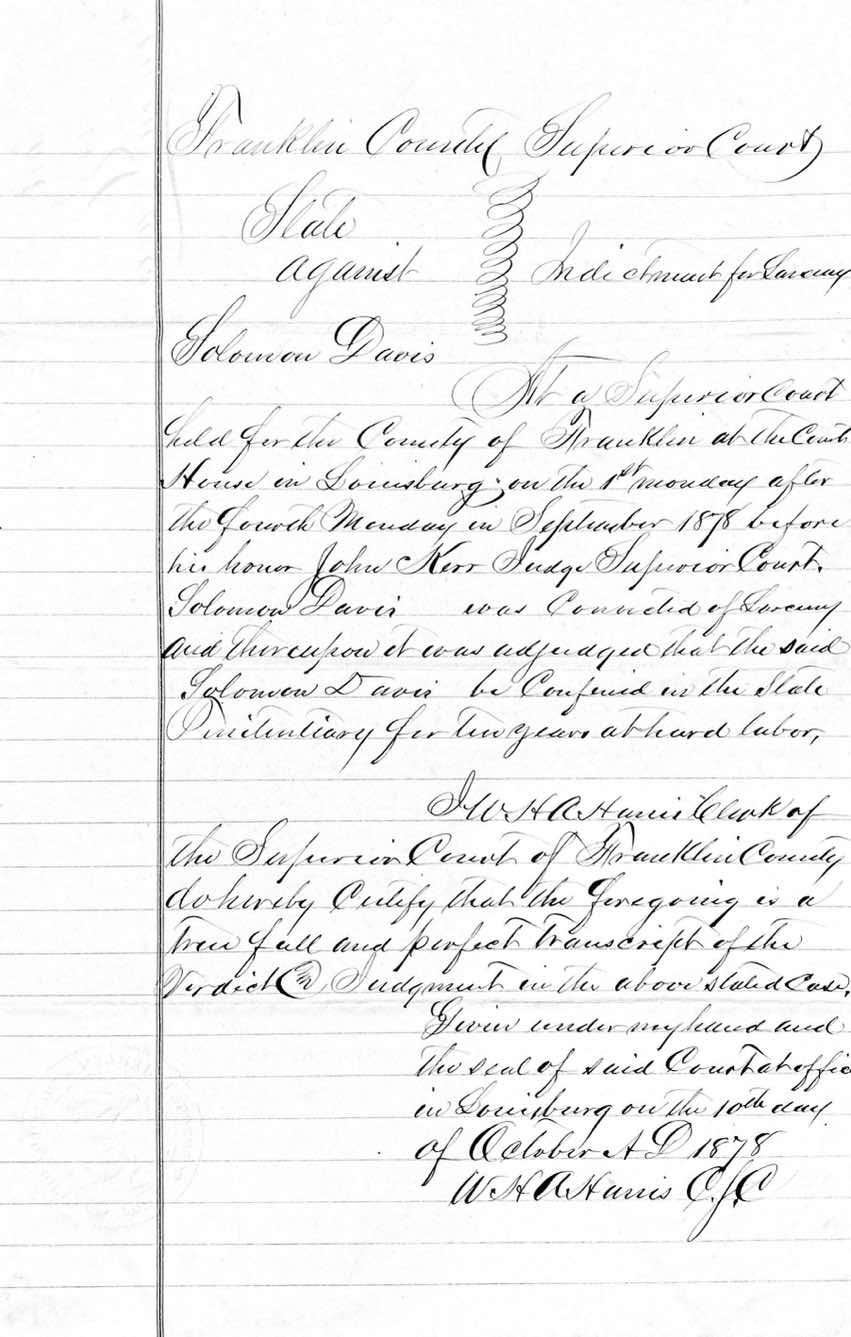 Franklin County Superior Court
State
against Indictment for Larceny
Solomon Davis
At a Superior Court
held for the County of Franklin at the Court
House in Louisburg, on the 1st monday after
the fourth Monday in September 1878 before
his honor John Kerr Judge Superior Court.
Solomon Davis was Convicted of Larceny
and thereupon it was adjudged that the said
Solomon Davis be Confined in the State
Penitentiary for ten years at hard labor,
I W H A Harris Clerk of
the Superior Court of Franklin County
do hereby Certify that the foregoing is a
true full and perfect transcript of the
Verdict & Judgment in the above stated Case.
Given under my hand and
the seal of said Court at offic
in Louisburg on the 10th day
of October A D 1878
W H A Harris C.S.C